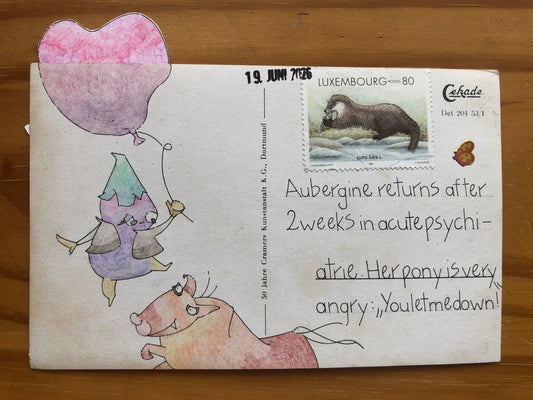 19. JUNI 2026
LUXEMBOURG POSTES 80
Lutra lutra L.
Cekade
Det 204 53/1
50 Jahre Cramers Kunstanstalt K.G., Dortmund
Aubergine returns after
2 weeks in acute psychi-
atrie. Her pony is very
angry: „You let me down!"